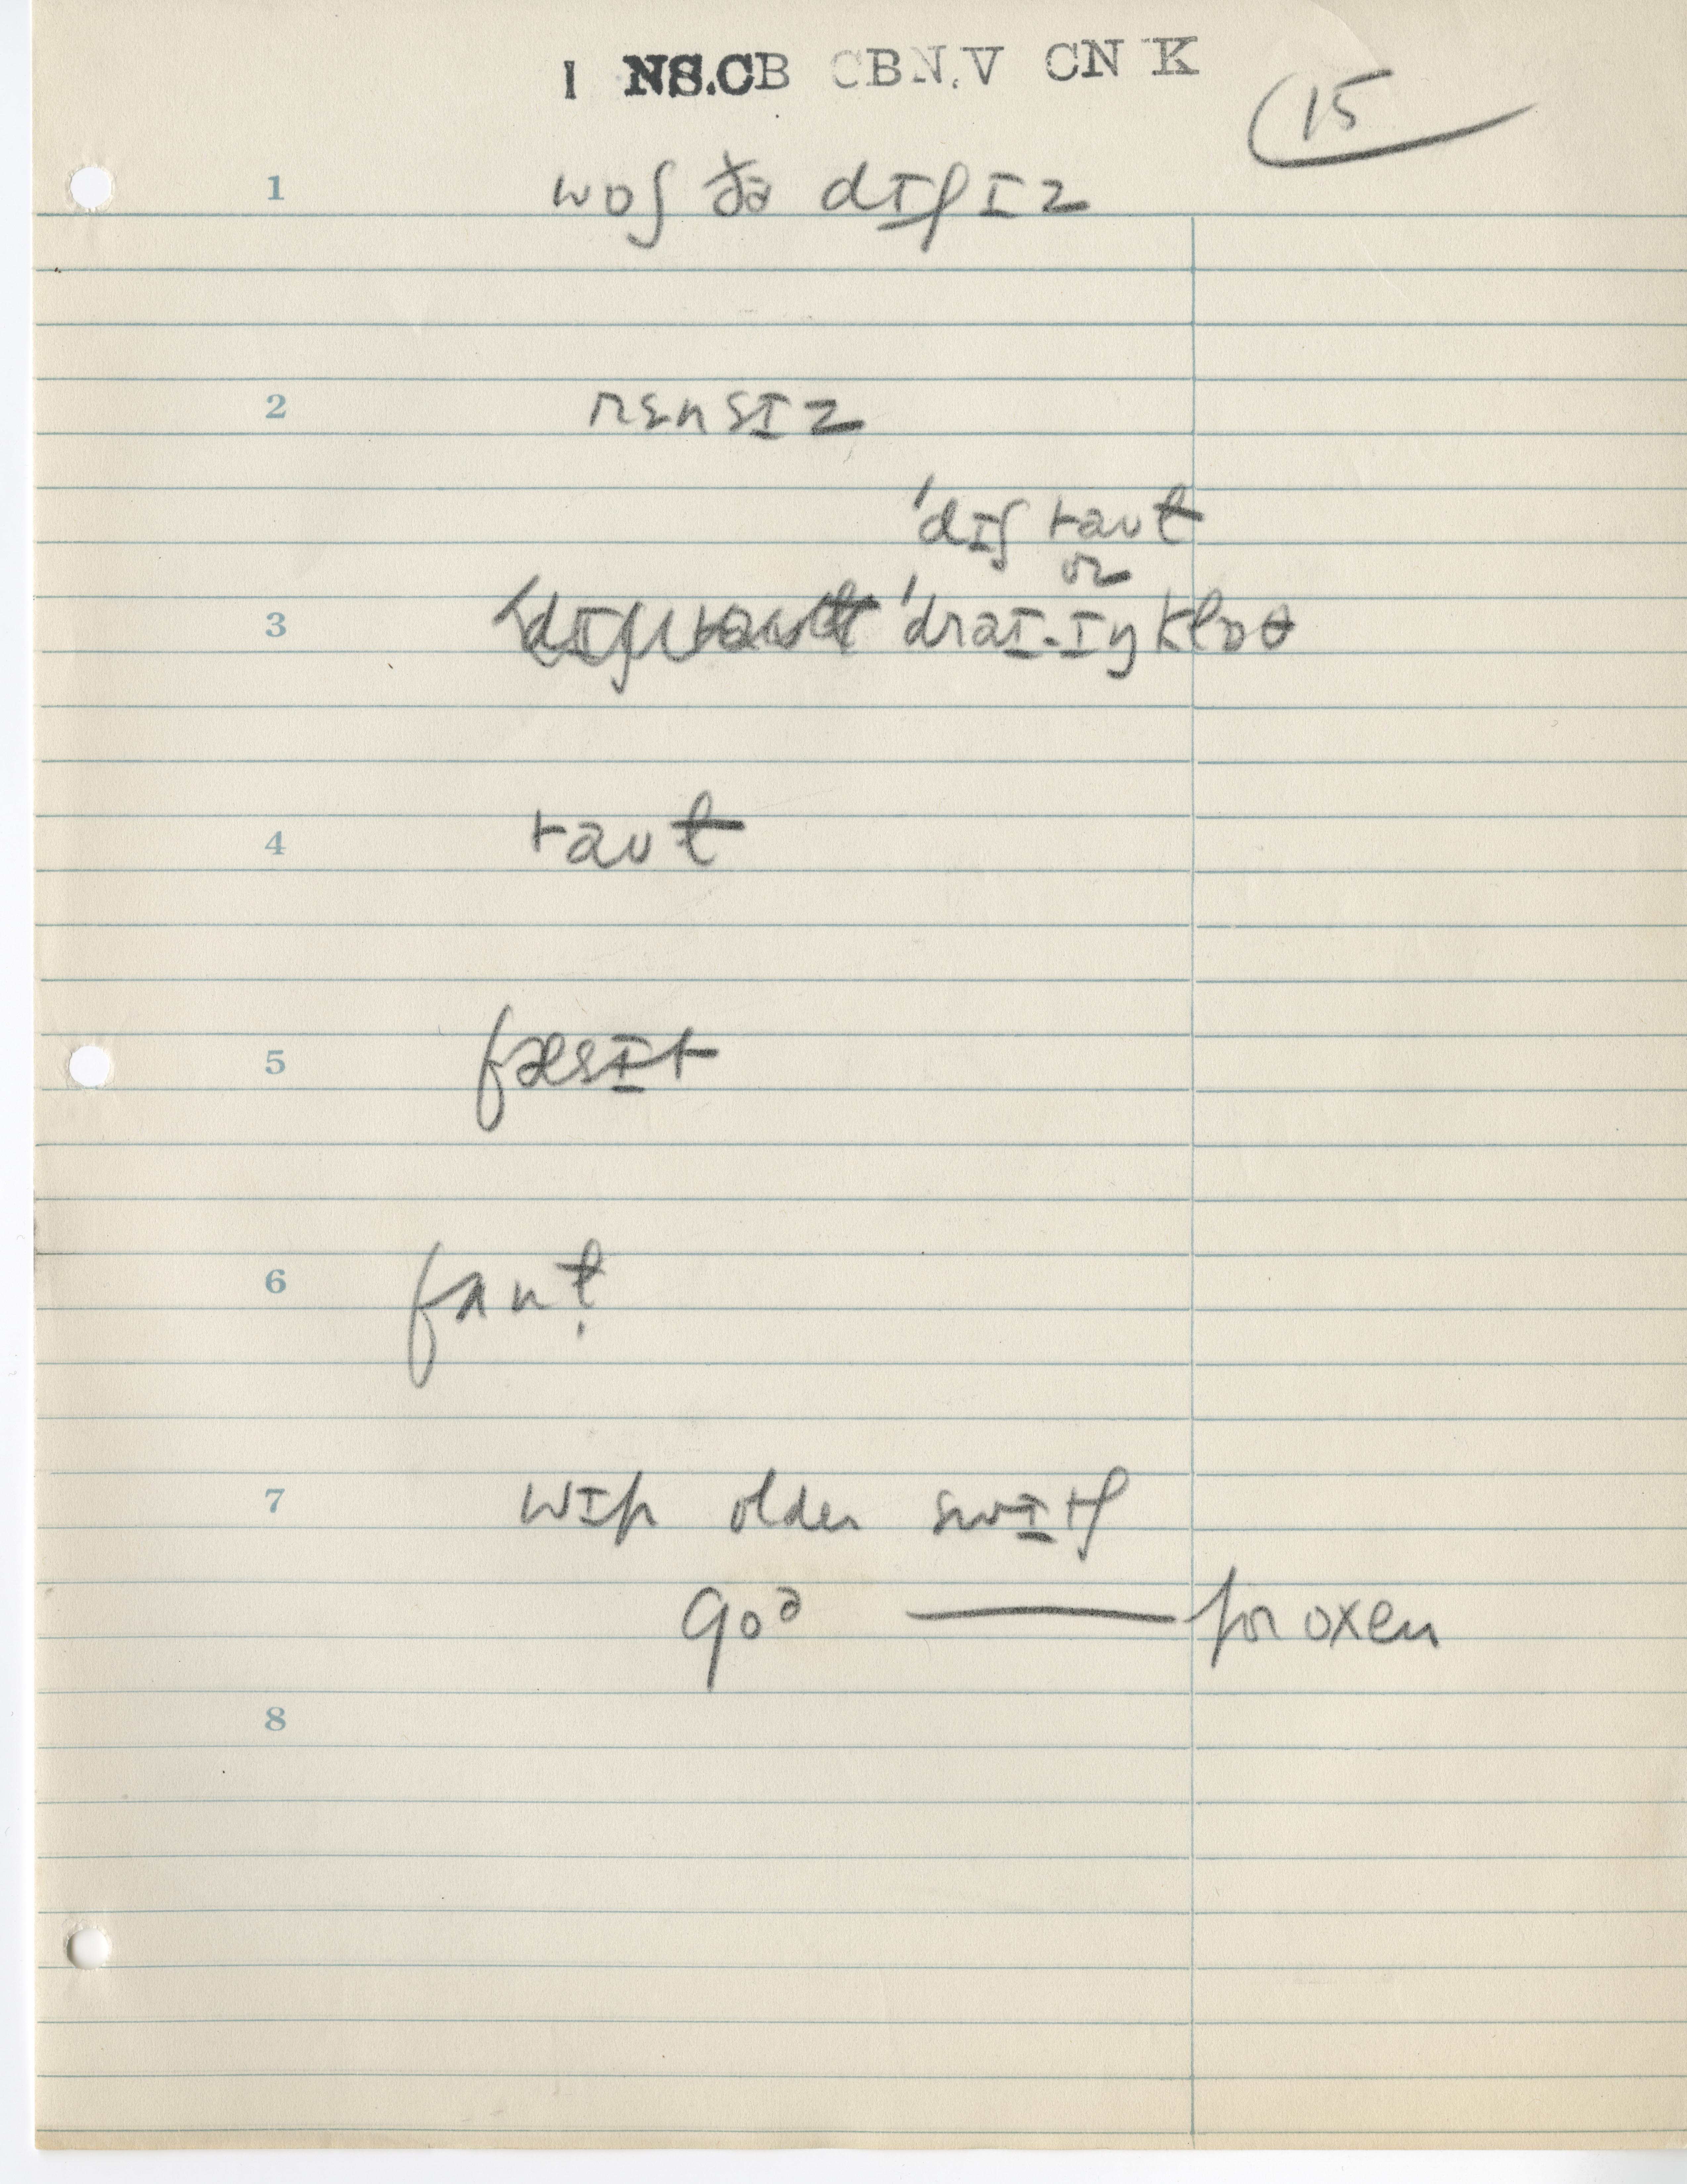 1 NS.CB CBN.V CN K
15
1 wɒʃ ðə dɪʃɪz
2 rɛnsɪz
'dɪʃ raʊt
or
3 'draɪ-ɪŋ klɒθ
4 raʊt
5 fæsɪt
6 fant
7 wɪp older swɪtʃ
goə — for oxen
8